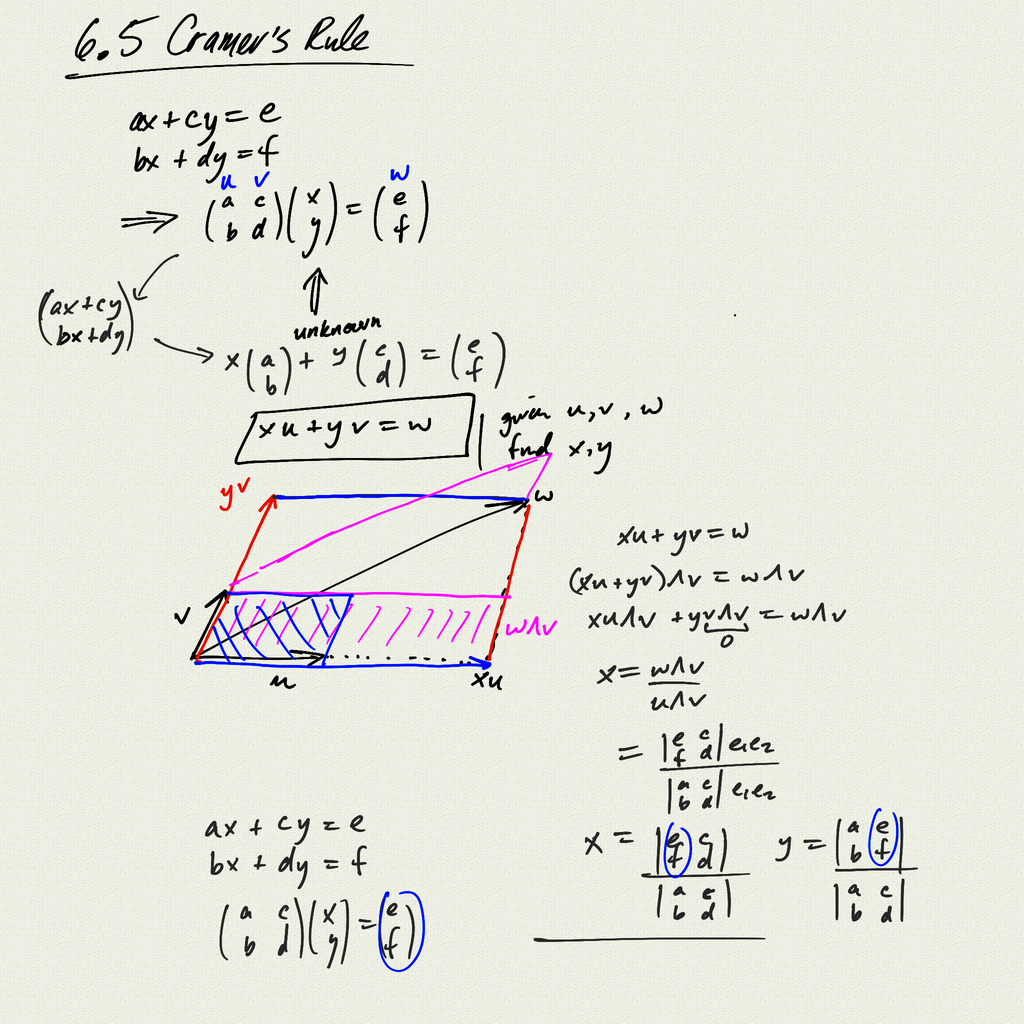 6.5 Cramer's Rule
ax + cy = e
bx + dy = f
u v w
⇒ (a c; b d)(x; y) = (e; f)
(ax + cy; bx + dy)
unknown
x(a; b) + y(c; d) = (e; f)
xu + yv = w
given u, v, w
find x, y
yv
w
v
w∧v
u
xu
xu + yv = w
(xu + yv)∧v = w∧v
xu∧v + yv∧v = w∧v
0
x = w∧v / u∧v
= |e c; f d| e₁e₂ / |a c; b d| e₁e₂
x = |e c; f d| / |a c; b d|
y = |a e; b f| / |a c; b d|
ax + cy = e
bx + dy = f
(a c; b d)(x; y) = (e; f)